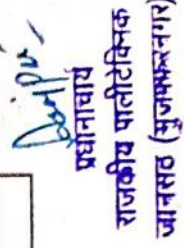 प्रधानाचार्य
राजकीय पालीटेक्निक
जानसठ (मुजफ्फरनगर)